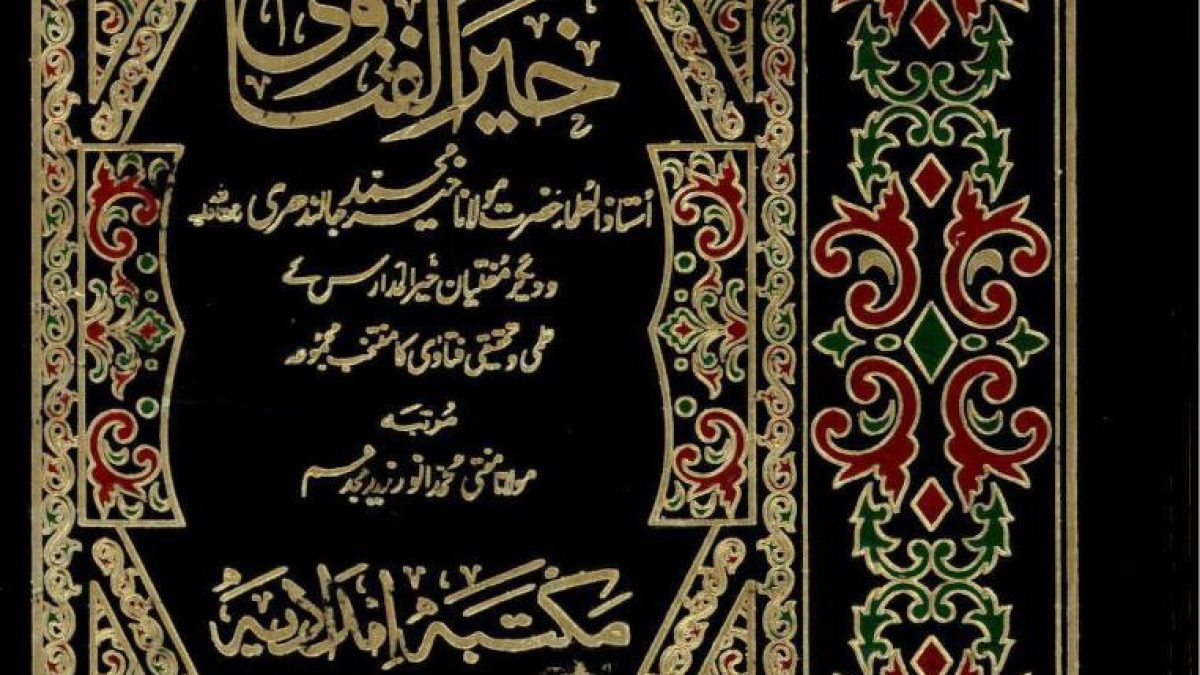 خیر الفتاوی
استاذ العلماء حضرت مولانا خیر محمد جالندھری رحمۃ اللہ علیہ
و دیگر مفتیان خیر المدارس کے
علمی و تحقیقی فتاوی کا منتخب مجموعہ
مرتبہ
مولانا مفتی محمد انور زید مجدہم
مکتبہ امدادیہ